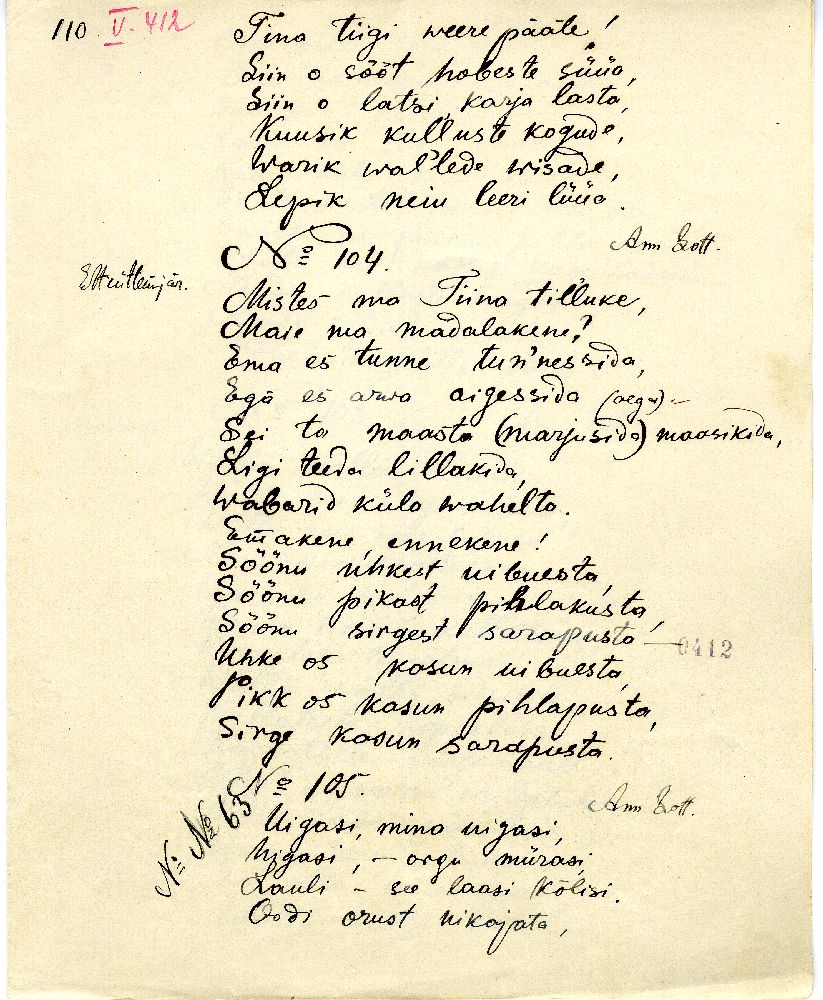 110. V. 412
Tina tiigi weere pääle!
Siin o sööt hobeste süüa,
Siin o latsi karja lasta,
Kuusik kulluste kogude,
Warik wal'lede wisade,
Lepik neiu leeri lüüa.
Ann
No 104.
Mistes ma Tiina til'luke,
Maie ma madalakene?
Ema es tunne tun'nessida,
Ega es arwa aigessida (aega) –
Sei ta maasta (marjusida) maasikida,
Ligi teeda lillakida,
Wabarid küla wahelta.
Emakene, ennekene!
Söönu uhkest uibuesta,
Söönu pikast pihlakusta,
Söönu sirgest sarapusta –
0412
Uhke os kasun uibuesta,
Pikk os kasun pihlapusta,
Sirge kasun sarapusta.
No 105.
Ann
N: No 63
Uigasi, mina uigasi,
huigasi, – orgu mürasi,
Lauli – see laasi kõlisi.
Oodi orust uikajata,